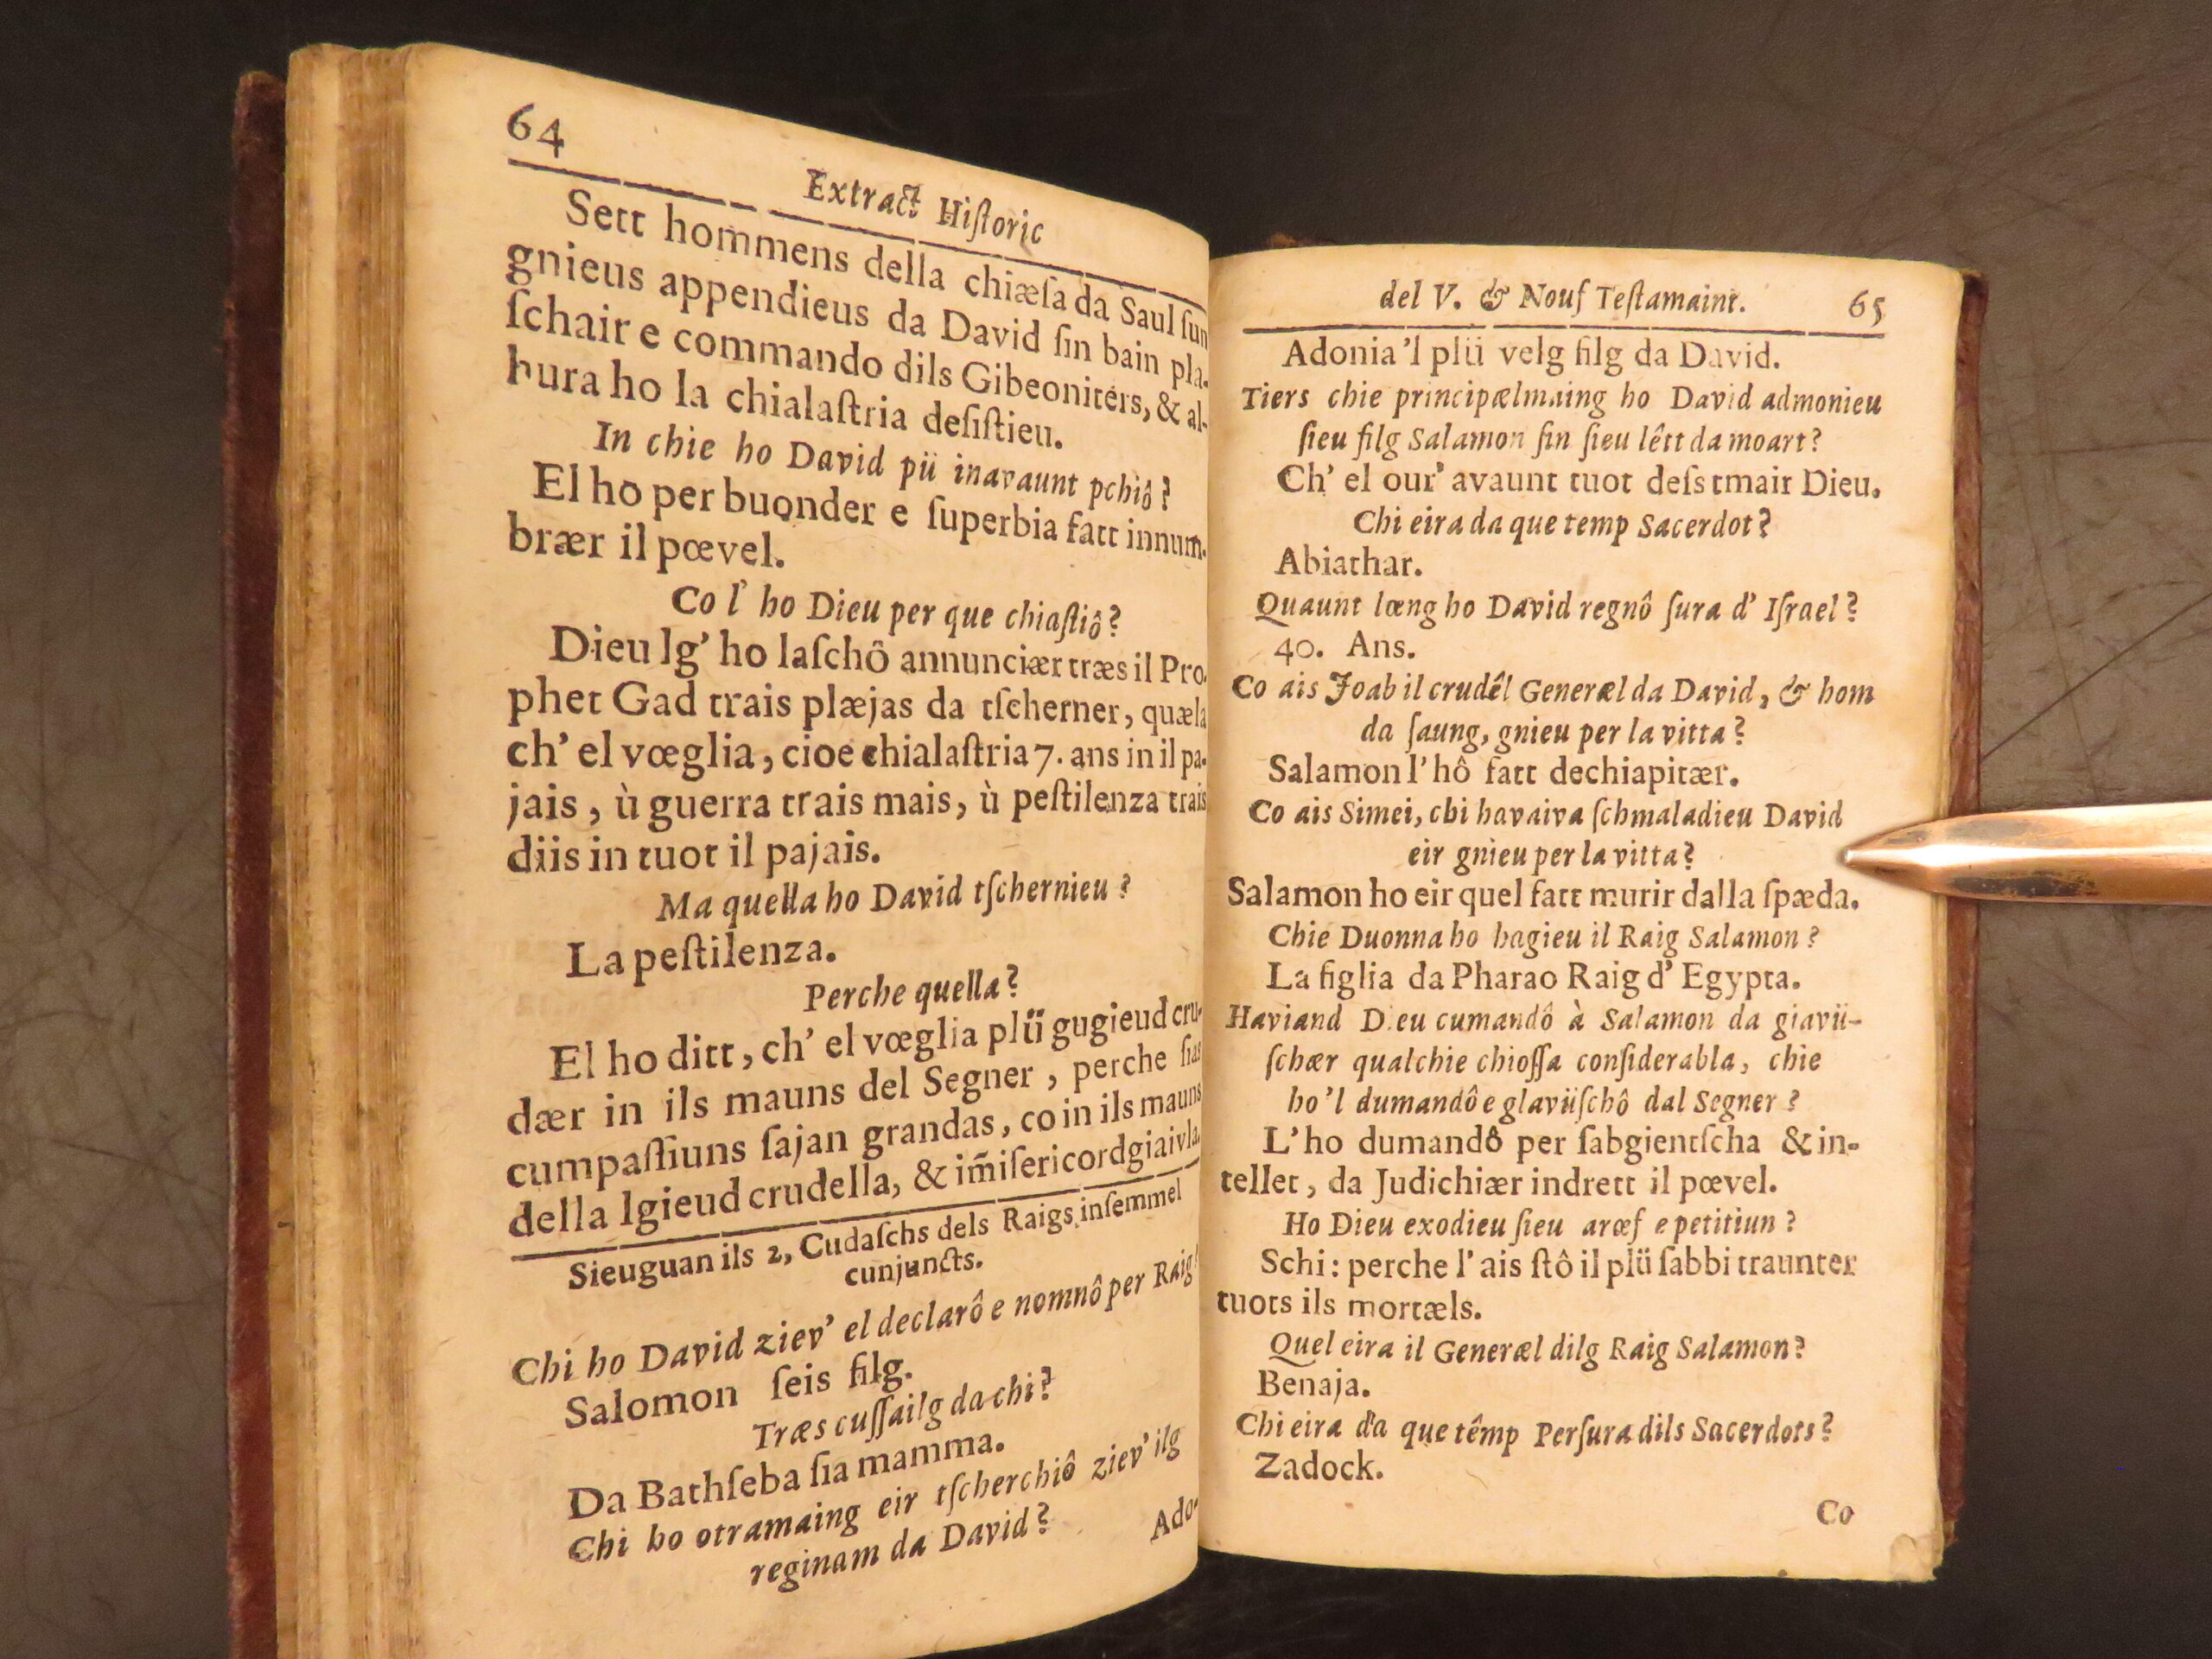 64
Extract Hiſtoric
Sett hommens della chiæſa da Saul ſun
gnieus appendieus da David ſin bain pla-
ſchair e commando dils Gibeoniters, & al-
hura ho la chialaſtria deſiſtieu.
In chie ho David pü inavaunt pchiô?
El ho per buonder e ſuperbia fatt innum-
brær il pœvel.
Co l' ho Dieu per que chiaſtiô?
Dieu lg' ho laſchô annunciær træs il Pro-
phet Gad trais plæjas da tſcherner, quæla
ch' el vœglia, cioe chialaſtria 7. ans in il pa-
jais, ù guerra trais mais, ù peſtilenza trais
diis in tuot il pajais.
Ma quella ho David tſchernieu?
La peſtilenza.
Perche quella?
El ho ditt, ch' el vœglia plü gugieud cru-
dær in ils mauns del Segner, perche ſias
cumpaſſiuns ſajan grandas, co in ils mauns
della lgieud crudella, & im̃iſericordgiaivla.
Sieuguan ils 2, Cudaſchs dels Raigs inſemmel
cunjuncts.
Chi ho David ziev' el declarô e nomnô per Raig?
Salomon ſeis filg.
Træs cuſſailg da chi?
Da Bathſeba ſia mamma.
Chi ho otramaing eir tſcherchiô ziev' ilg
reginam da David?
Ado-
del V. & Nouf Teſtamaint.
65
Adonia 'l plü velg filg da David.
Tiers chie principælmaing ho David admonieu
ſieu filg Salamon ſin ſieu lêtt da moart?
Ch' el our' avaunt tuot deſs tmair Dieu.
Chi eira da que temp Sacerdot?
Abiathar.
Quaunt lœng ho David regnô ſura d' Iſrael?
40. Ans.
Co ais Joab il crudêl Generæl da David, & hom
da ſaung, gnieu per la vitta?
Salamon l' hô fatt dechiapitær.
Co ais Simei, chi havaiva ſchmaladieu David
eir gnieu per la vitta?
Salamon ho eir quel fatt murir dalla ſpæda.
Chie Duonna ho hagieu il Raig Salamon?
La figlia da Pharao Raig d' Egypta.
Haviand Dieu cumandô à Salamon da giavü-
ſchær qualchie chioſſa conſiderabla, chie
ho 'l dumandô e glavüſchô dal Segner?
L' ho dumandô per ſabgientſcha & in-
tellet, da Judichiær indrett il pœvel.
Ho Dieu exodieu ſieu arœf e petitiun?
Schi: perche l' ais ſtô il plü ſabbi traunter
tuots ils mortæls.
Quel eira il Generæl dilg Raig Salamon?
Benaja.
Chi eira da que têmp Perſura dils Sacerdots?
Zadock.
Co